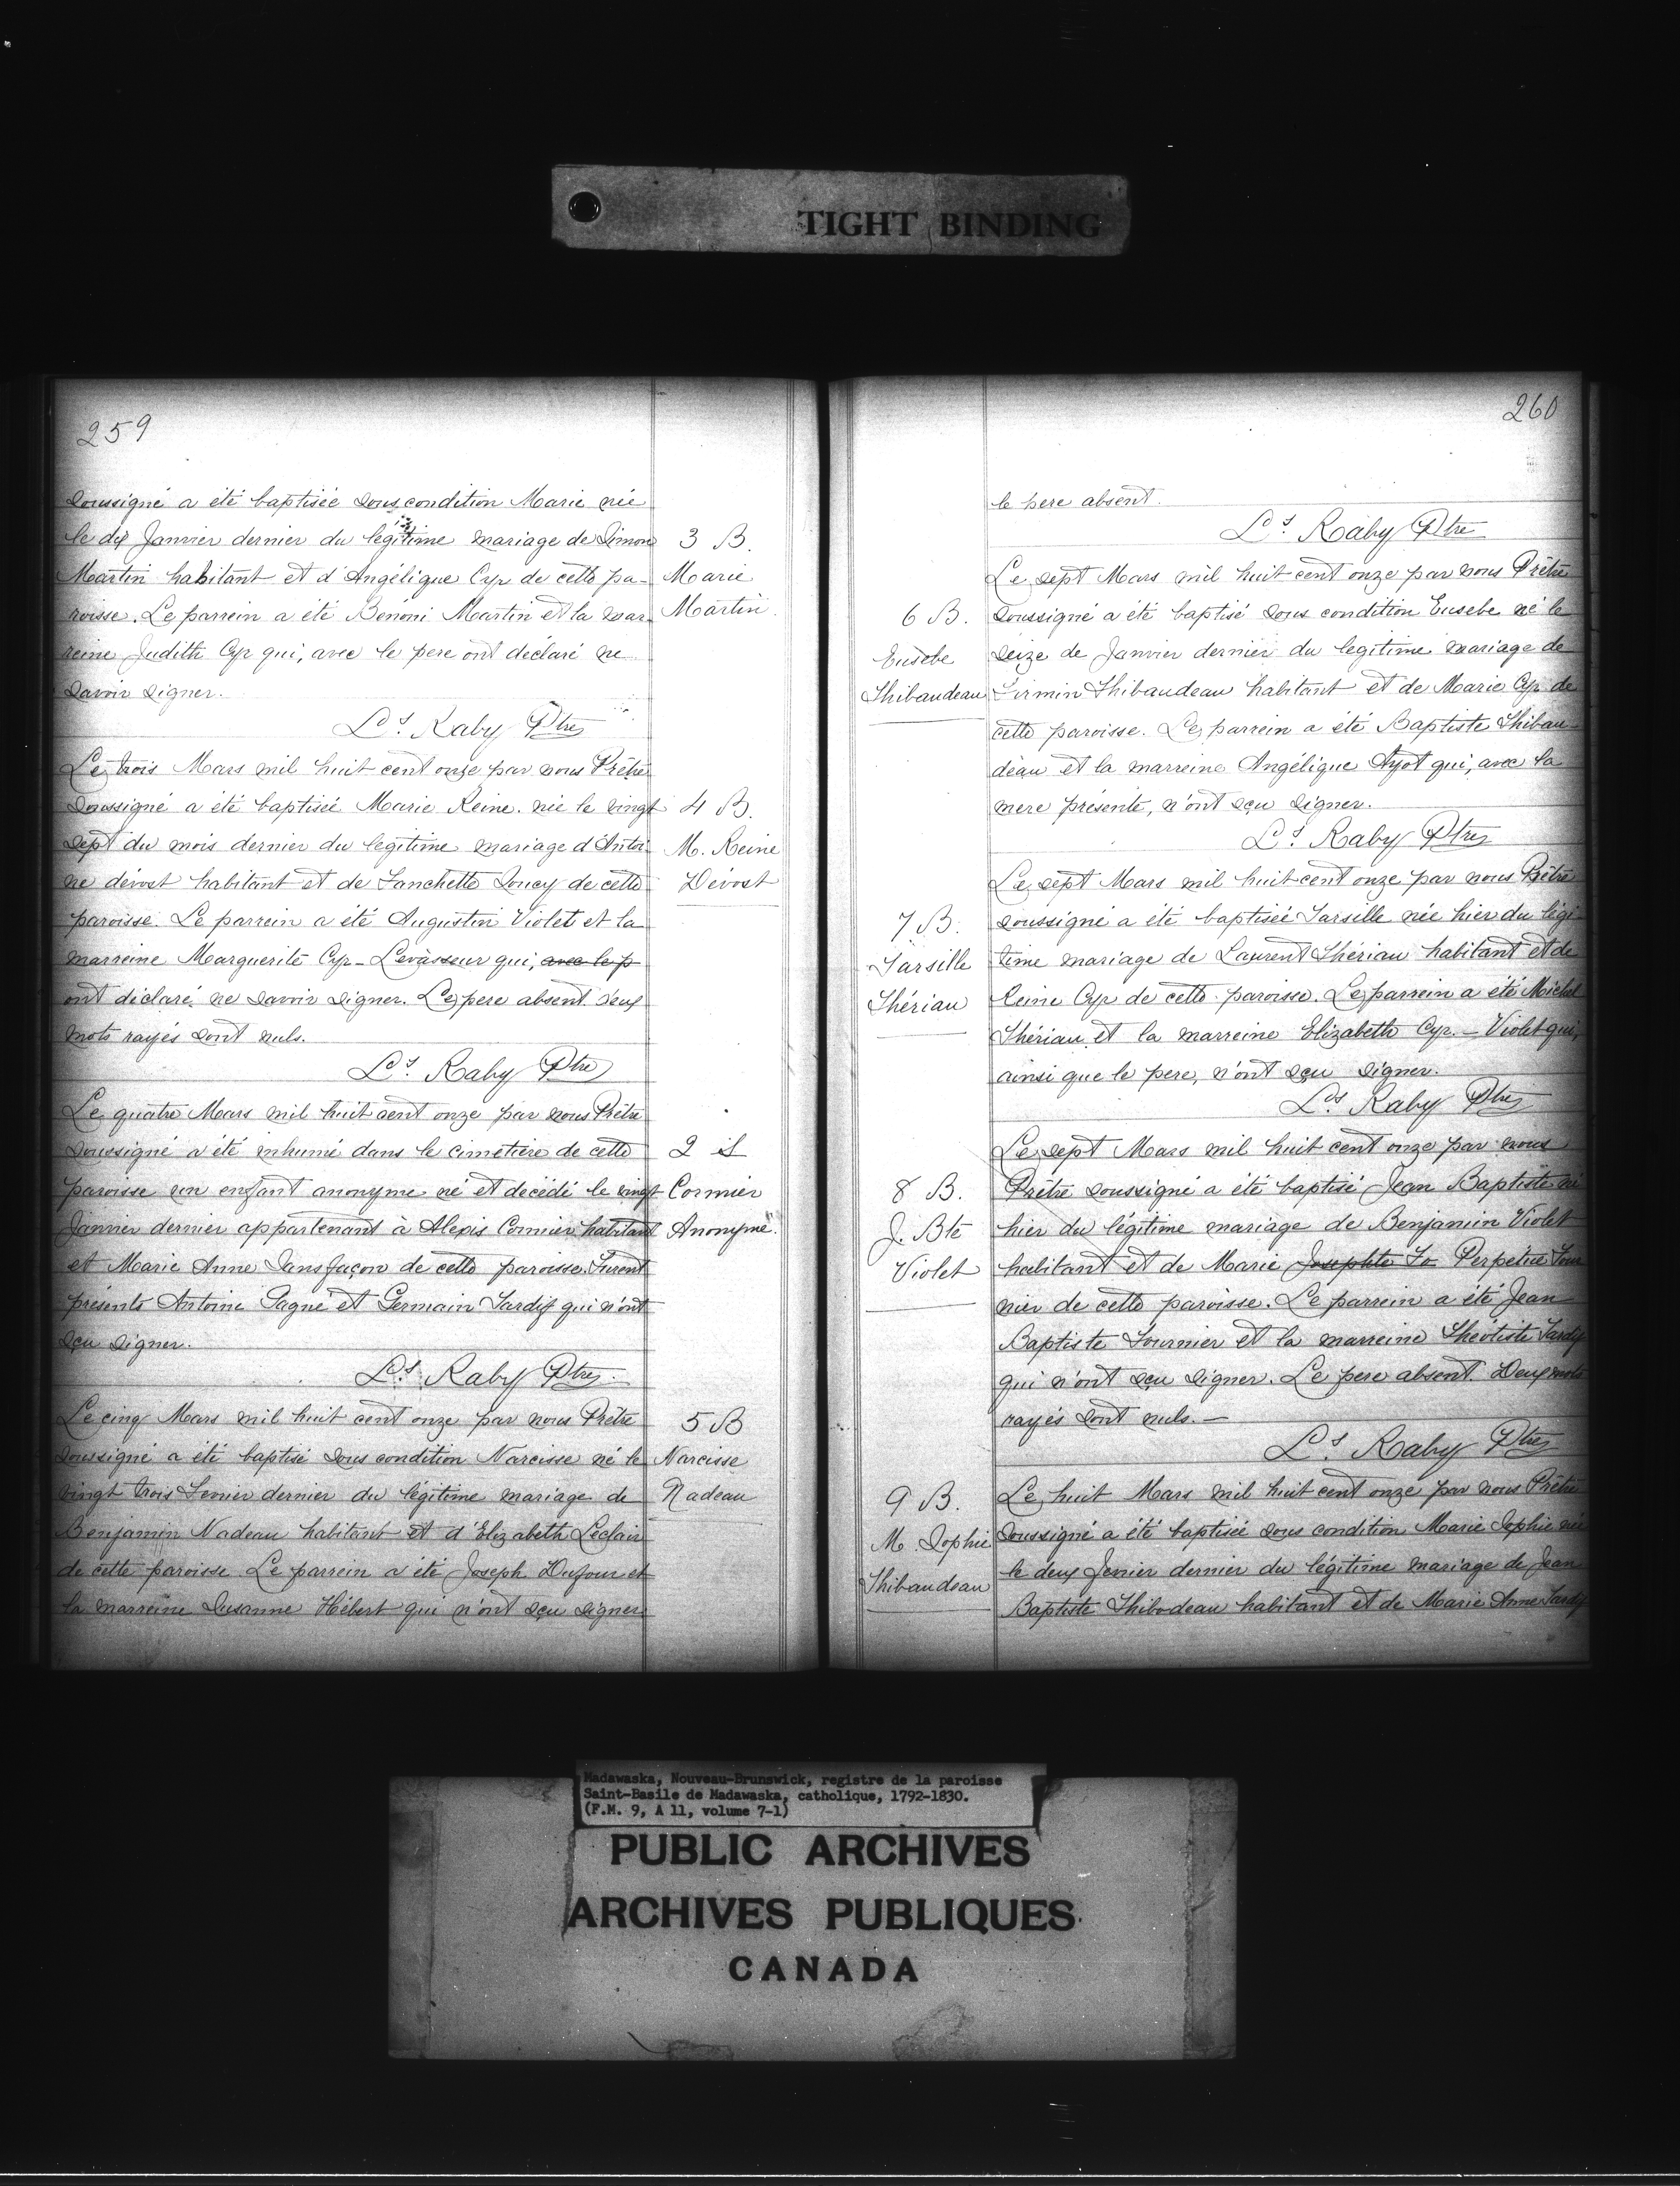 TIGHT BINDING
259
soussigné a été baptisée sous condition Marie née
le dix Janvier dernier du légitime mariage de Simon
Martin habitant et d'Angélique Cyr de cette pa-
roisse. Le parrein a été Bénoni Martin et la mar-
reine Judith Cyr qui, avec le pere ont déclaré ne
savoir signer.
Ls. Raby Ptre
3 B.
Marie
Martin.
Le trois Mars mil huit cent onze par nous Prêtre
soussigné a été baptisée Marie Reine née le vingt
sept du mois dernier du legitime mariage d'Antoi-
ne dévost habitant et de Fanchette Soucy de cette
paroisse. Le parrein a été Augustin Violet et la
marreine Marguerite Cyr - Levasseur qui, avec le p
ont déclaré ne savoir signer. Le pere absent. deux
mots rayés sont nuls.
Ls. Raby Ptre
4 B.
M. Reine
Dévost
Le quatre Mars mil huit cent onze par nous Prêtre
soussigné a été inhumé dans le cimetière de cette
paroisse un enfant anonyme né et decédé le vingt
Janvier dernier appartenant à Alexis Cormier habitant
et Marie Anne Sansfaçon de cette paroisse. Furent
présents Antoine Gagné et Germain Tardif qui n'ont
sçu signer.
Ls. Raby Ptre
2 S
Cormier
Anonyme.
Le cinq Mars mil huit cent onze par nous Prêtre
soussigné a été baptisé sous condition Narcisse né le
vingt trois Fevrier dernier du légitime mariage de
Benjamin Nadeau habitant et d'Elizabeth Leclair
de cette paroisse. Le parrein a été Joseph Dufour et
la marreine Susanne Hébert qui n'ont sçu signer
5 B
Narcisse
Nadeau
260
le pere absent.
Ls. Raby Ptre
Le sept Mars mil huit cent onze par nous Prêtre
soussigné a été baptisé sous condition Eusebe né le
seize de Janvier dernier du legitime mariage de
Firmin Thibaudeau habitant et de Marie Cyr de
cette paroisse. Le parrein a été Baptiste Thibau-
deau et la marreine Angélique Ayot qui, avec la
mere présente, n'ont sçu signer.
Ls. Raby Ptre
6 B.
Eusebe
Thibaudeau
Le sept Mars mil huit cent onze par nous Prêtre
soussigné a été baptisée Tarsille née hier du légi-
time mariage de Laurent Thériau habitant et de
Reine Cyr de cette paroisse. Le parrein a été Michel
Thériau et la marreine Elizabeth Cyr. - Violet qui,
ainsi que le pere, n'ont sçu signer.
Ls Raby Ptre
7 B.
Tarsille
Thériau
Le sept Mars mil huit cent onze par nous
Prêtre soussigné a été baptisé Jean Baptiste né
hier du légitime mariage de Benjamin Violet
habitant et de Marie Josephte Fo Perpetue Four
nier de cette paroisse. Le parrein a été Jean
Baptiste Fournier et la marreine Théotiste Tardif
qui n'ont sçu signer. Le pere absent. Deux mots
rayés sont nuls. -
Ls. Raby Ptre
8 B.
J. Bte
Violet
Le huit Mars mil huit cent onze par nous Prêtre
soussigné a été baptisée sous condition Marie Sophie née
le deux Fevrier dernier du légitime mariage de Jean
Baptiste Thibodeau habitant et de Marie Anne Tardif
9 B.
M. Sophie
Thibaudeau
Madawaska, Nouveau-Brunswick, registre de la paroisse
Saint-Basile de Madawaska, catholique, 1792-1830.
(F.M. 9, A 11, volume 7-1)
PUBLIC ARCHIVES
ARCHIVES PUBLIQUES
CANADA